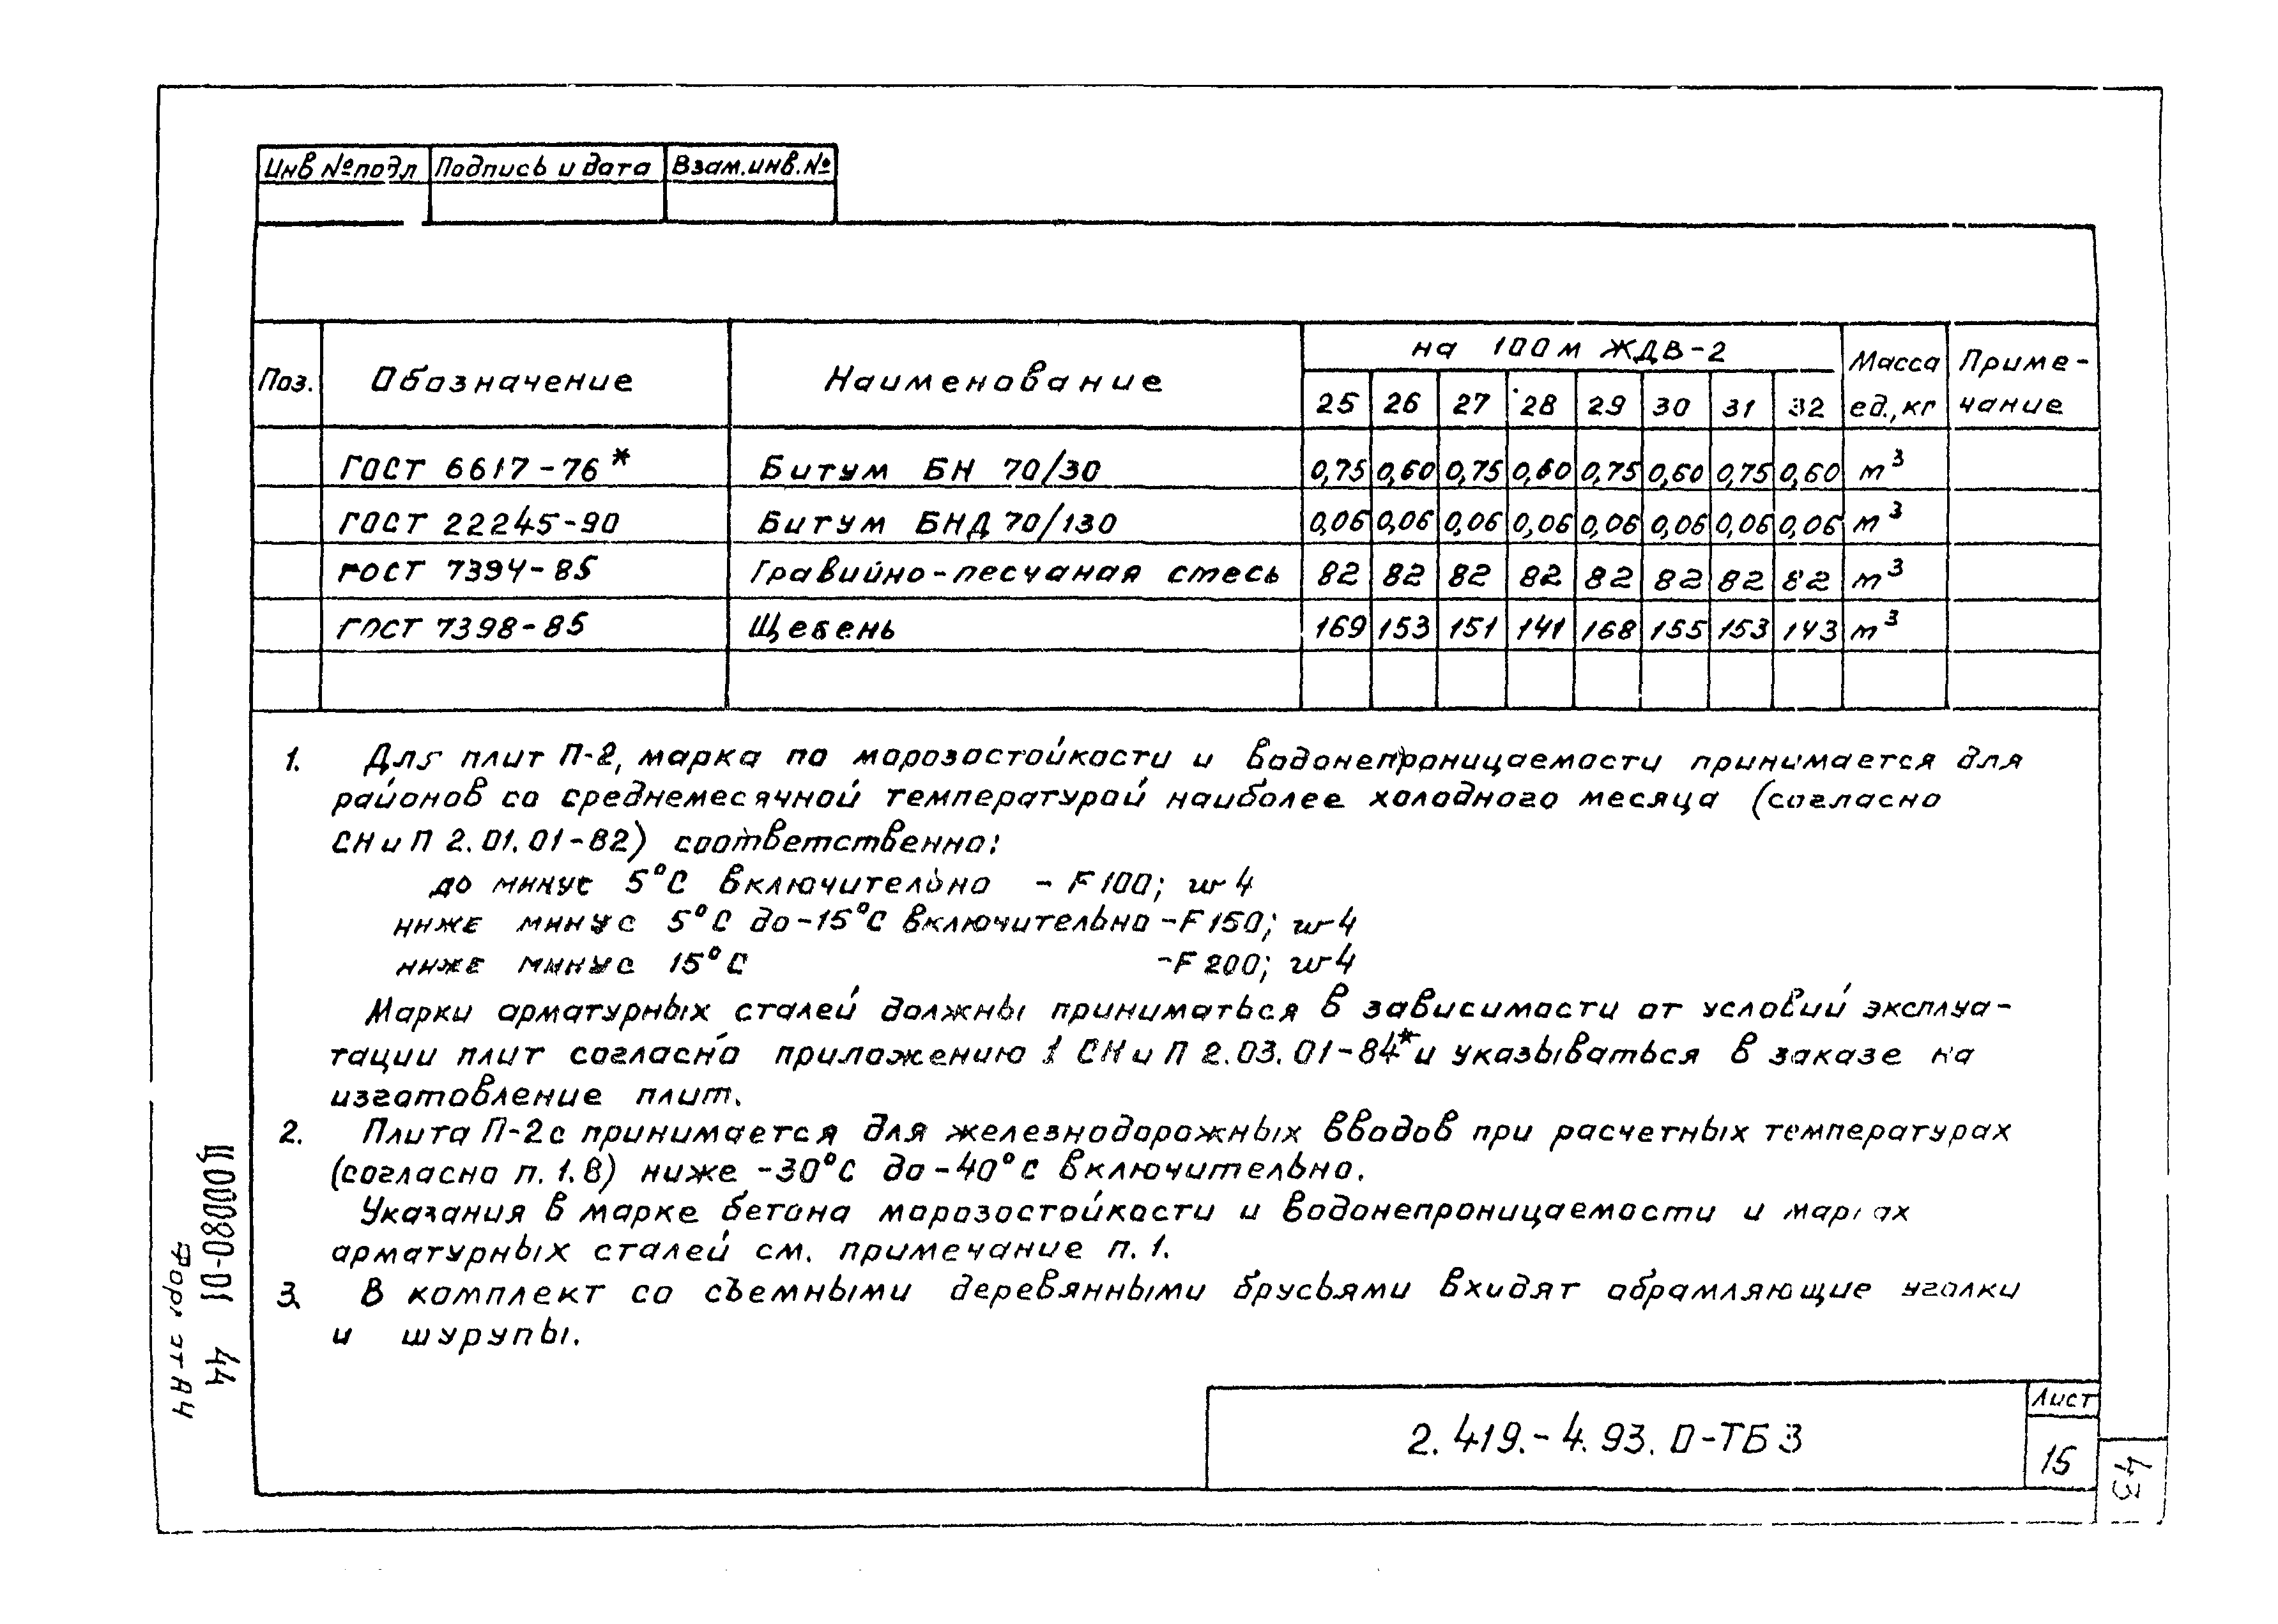 Инв № подл Подпись и дата Взам.инв.№
Поз. Обозначение Наименование на 100м ЖДВ-2 Масса ед., кг Приме-чание
25 26 27 28 29 30 31 32
ГОСТ 6617-76* Битум БН 70/30 0,75 0,60 0,75 0,60 0,75 0,60 0,75 0,60 м³
ГОСТ 22245-90 Битум БНД 70/130 0,06 0,06 0,06 0,06 0,06 0,06 0,06 0,06 м³
ГОСТ 7394-85 Гравийно-песчаная смесь 82 82 82 82 82 82 82 82 м³
ГОСТ 7398-85 Щебень 169 153 151 141 168 155 153 143 м³
1. Для плит П-2, марка по морозостойкости и водонепроницаемости принимается для
районов со среднемесячной температурой наиболее холодного месяца (согласно
СНиП 2.01.01-82) соответственно:
до минус 5°С включительно - F100; w4
ниже минус 5°С до -15°С включительно -F150; w-4
ниже минус 15°С -F200; w-4
Марки арматурных сталей должны приниматься в зависимости от условий эксплуа-
тации плит согласно приложению 1 СНиП 2.03.01-84* и указываться в заказе на
изготовление плит.
2. Плита П-2с принимается для железнодорожных вводов при расчетных температурах
(согласно п. 1.8) ниже -30°С до -40°С включительно.
Указания в марке бетона морозостойкости и водонепроницаемости и марках
арматурных сталей см. примечание п. 1.
3. В комплект со съемными деревянными брусьями входят обрамляющие уголки
и шурупы.
2.419.-4.93.0-ТБ 3
Лист
15
43
Ц00080-01 44
А4